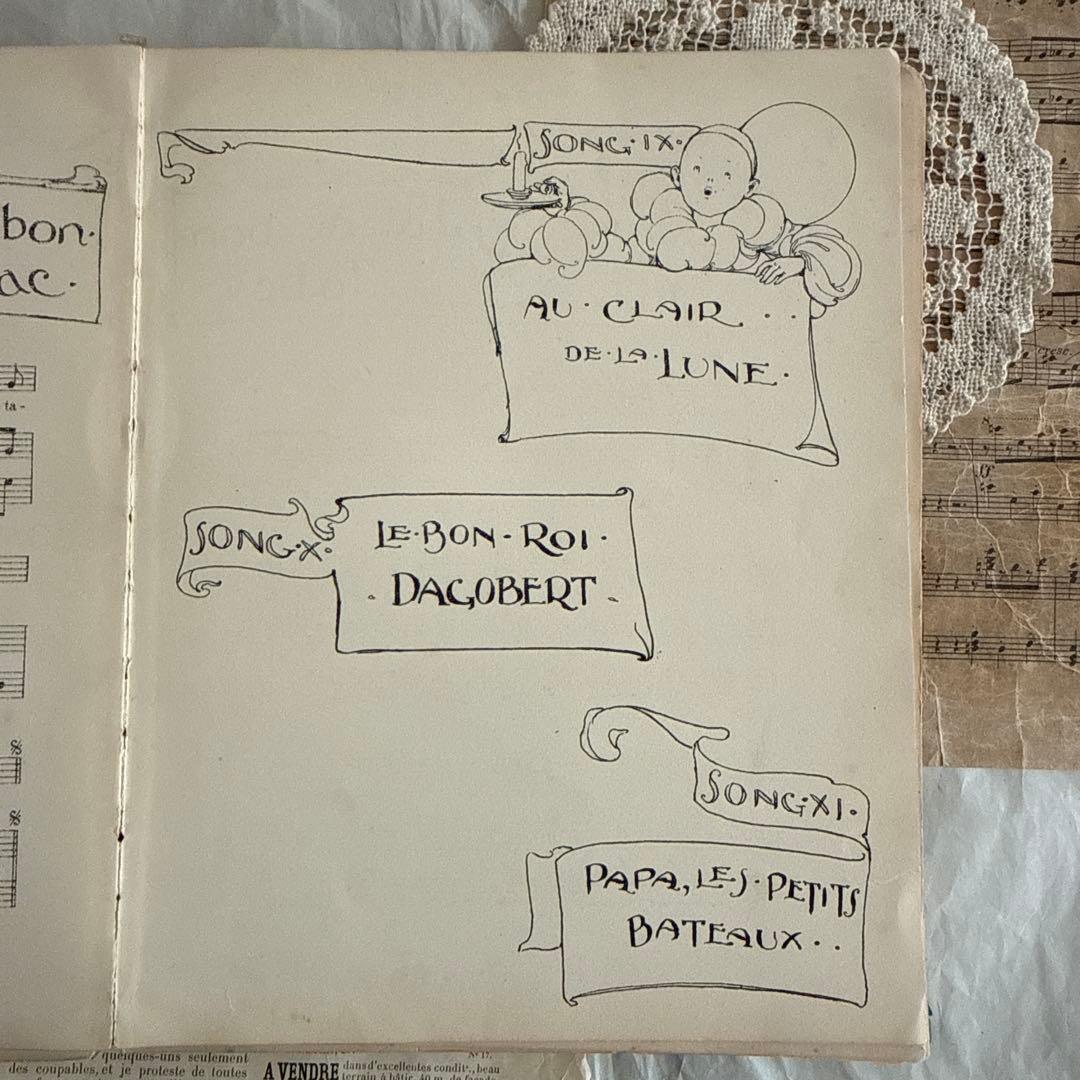 bon·
ac.
ta-
SONG·IX·
AU · CLAIR . .
DE·LA·LUNE·
SONG·X·
LE·BON·ROI·
· DAGOBERT ·
SONG·XI·
PAPA, LES·PETITS
BATEAUX··
cresc.
ff
quelques-uns seulement
des coupables, et je proteste de toutes
A VENDRE
dans d'excellentes condit., beau
terrain à bâtir,
N° 17.